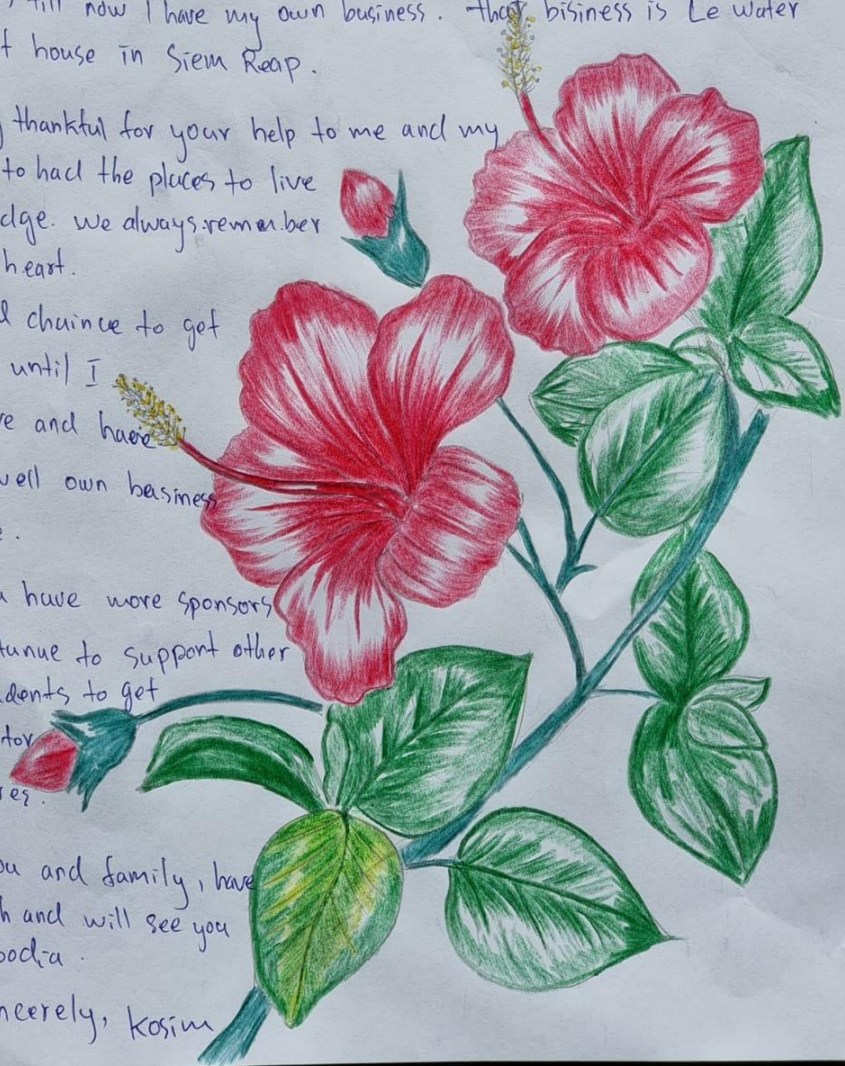 till now I have my own business. that bisiness is Le Water
house in Siem Reap.
thankful for your help to me and my
to had the places to live
we always.remem.ber
heart.
chaince to get
until I
and have
own business
have more sponsors
to support other
to get
and family, have
and will see you
Kosim